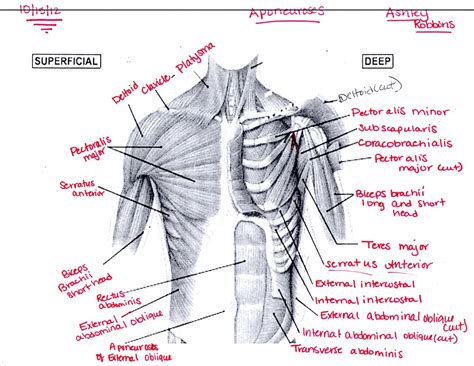 10/15/12
Aponeuroses
Ashley
Robbins
SUPERFICIAL
DEEP
Platysma
Clavicle
Deltoid
Pectoralis
major
Serratus
anterior
Biceps
Brachii
short head
Rectus
abdominis
External
abdominal oblique
Aponeurosis
of External oblique
Deltoid (cut)
Pectoralis minor
Subscapularis
Coracobrachialis
Pectoralis
major (cut)
Biceps brachii
long and short
head
Teres major
Serratus Anterior
External intercostal
Internal intercostal
External abdominal oblique
(cut)
Internal abdominal oblique (cut)
Transverse abdominis